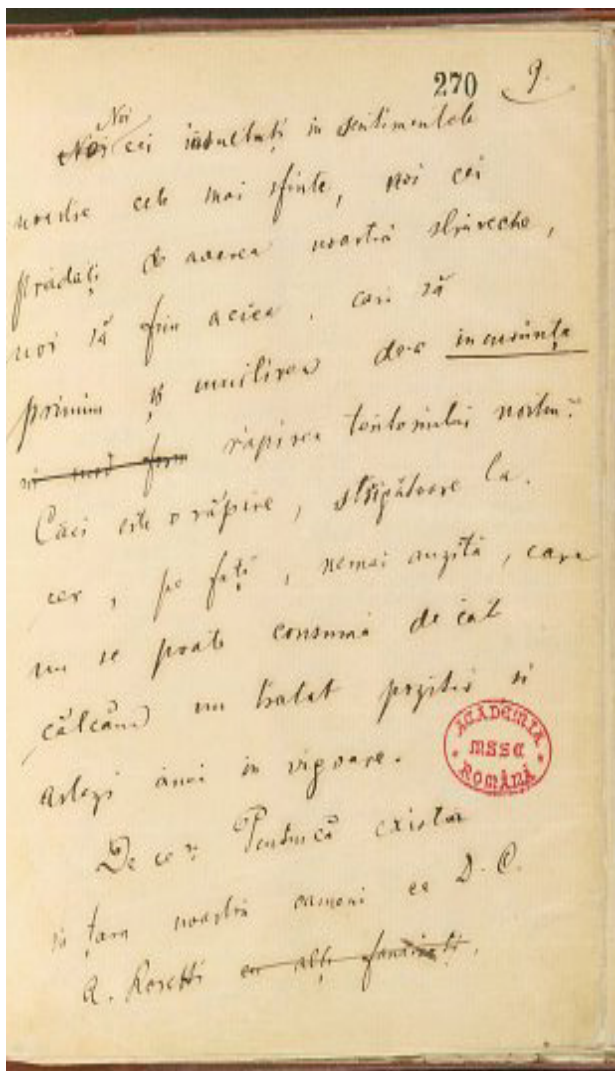 270 9.
Noi
Noi cei insultați in sentimentele
noastre cele mai sfinte, noi cei
prădați de averea noastră străveche,
noi să fim aceea, cari să
primim și umilirea de-a incuviința
in mod form răpirea teritoriului nostru?
Căci este o răpire, strigătoare la
cer, pe față, nemai auzită, care
nu se poate consuma de cât
călcând un tratat pozitiv si
astăzi ăncă in vigoare.
De ce? Pentrucă existau
in țara noastră oameni ca D. C.
A. Rosetti cu alți fanatici,
ACADEMIA
MSSE
ROMÂNĂ